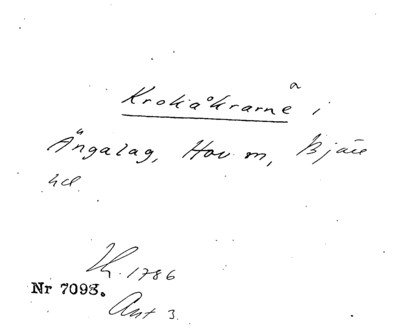 Krokåkrarne i
a
Ängalag, Hov m, Bjäre
hd.
Lh. 1786
Nr 7093.
Ant 3.